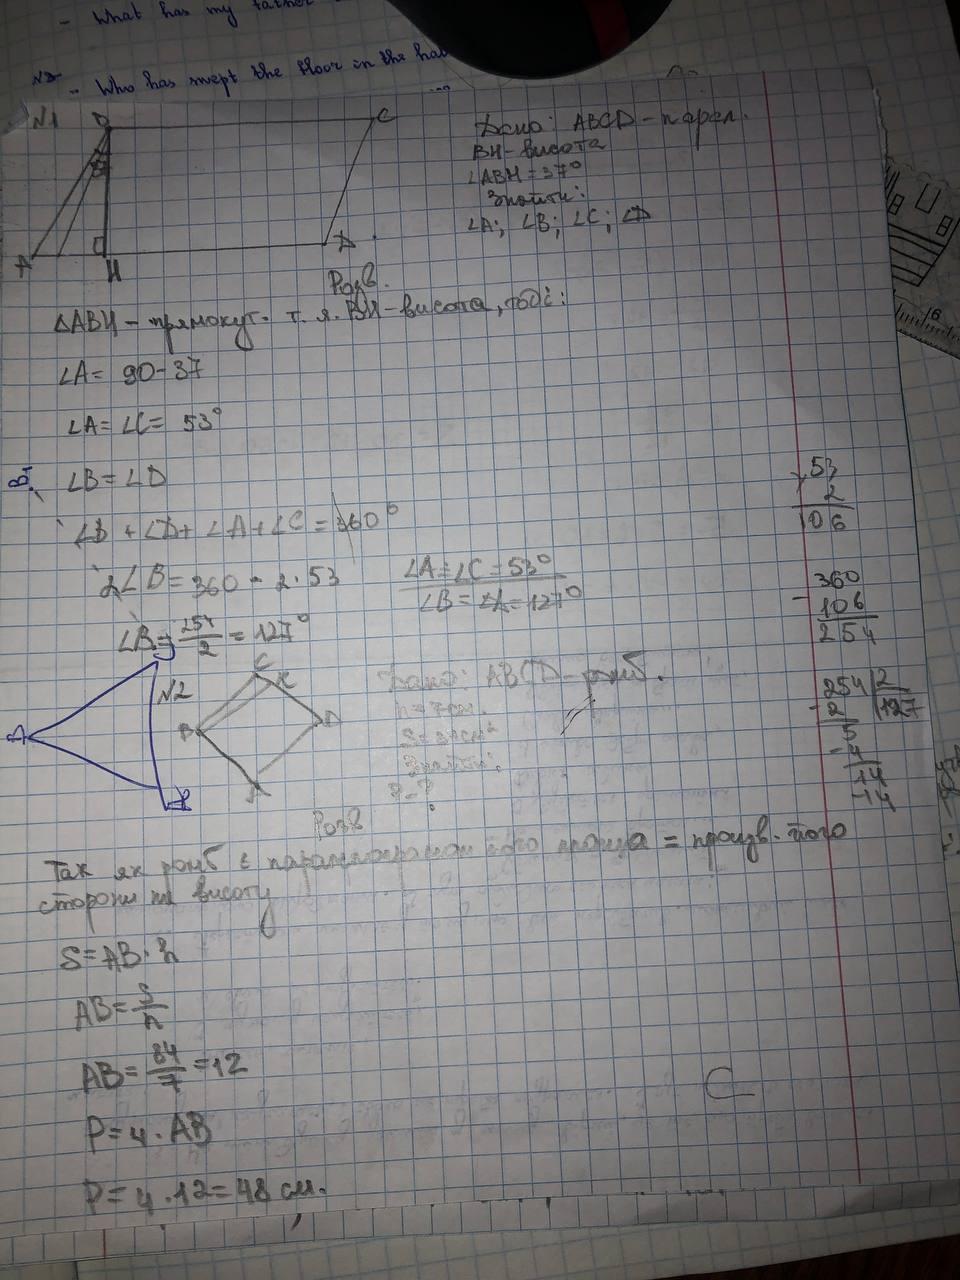 - What has my father
N2
- Who has swept the floor in the hall
N1
B
C
A
H
D
Дано: ABCD - парал.
BH - висота
∠ABH = 37°
Знайти:
∠A; ∠B; ∠C; ∠D
Розв.
△ABH - прямокут. т. я. BH - висота, тоді:
∠A = 90 - 37
∠A = ∠C = 53°
∠B = ∠D
∠B + ∠D + ∠A + ∠C = 360°
2∠B = 360 - 2 · 53
∠A = ∠C = 53°
∠B = 127°
∠B = 254/2 = 127°
53
2
106
- 360
106
254
- 254 | 2
2 | 127
5
- 4
14
- 14
N2
C
K
B
D
A
Дано: ABCD - ромб.
h = 7 см.
S = 84 см²
Знайти:
P - ?
Розв
Так як ромб є паралелограмом його площа = произв. його
сторони на висоту
S = AB · h
AB = S/h
AB = 84/7 = 12
P = 4 · AB
P = 4 · 12 = 48 см.
C